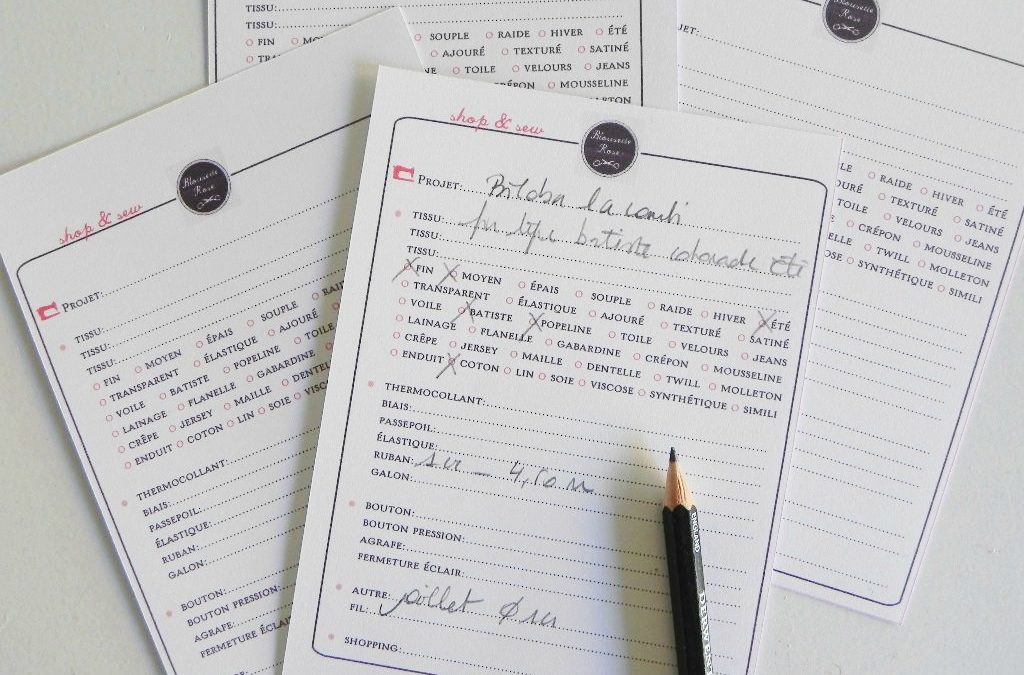 TISSU:
TISSU:
FIN SOUPLE RAIDE HIVER ÉTÉ
AJOURÉ TEXTURÉ SATINÉ
TOILE VELOURS JEANS
CRÉPON MOUSSELINE
shop & sew
Blousette
Rose
PROJET:
TISSU:
TISSU:
TISSU:
FIN MOYEN ÉPAIS SOUPLE
TRANSPARENT ÉLASTIQUE AJOURÉ
VOILE BATISTE POPELINE TOILE
LAINAGE FLANELLE GABARDINE
CRÊPE JERSEY MAILLE
ENDUIT COTON LIN SOIE
THERMOCOLLANT:
BIAIS:
PASSEPOIL:
ÉLASTIQUE:
RUBAN:
GALON:
BOUTON:
BOUTON PRESSION:
AGRAFE:
FERMETURE
shop & sew
Blousette
Rose
PROJET: Biloba
TISSU: batiste
TISSU: été
TISSU:
FIN MOYEN ÉPAIS SOUPLE RAIDE HIVER ÉTÉ
TRANSPARENT ÉLASTIQUE AJOURÉ TEXTURÉ SATINÉ
VOILE BATISTE POPELINE TOILE VELOURS JEANS
LAINAGE FLANELLE GABARDINE CRÉPON MOUSSELINE
CRÊPE JERSEY MAILLE DENTELLE TWILL MOLLETON
ENDUIT COTON LIN SOIE VISCOSE SYNTHÉTIQUE SIMILI
THERMOCOLLANT:
BIAIS:
PASSEPOIL:
ÉLASTIQUE:
RUBAN:
GALON:
BOUTON:
BOUTON PRESSION:
AGRAFE:
FERMETURE ÉCLAIR:
AUTRE:
FIL:
SHOPPING:
Rose
RAIDE HIVER ÉTÉ
TEXTURÉ SATINÉ
TOILE VELOURS JEANS
CRÉPON MOUSSELINE
TWILL MOLLETON
SYNTHÉTIQUE SIMILI